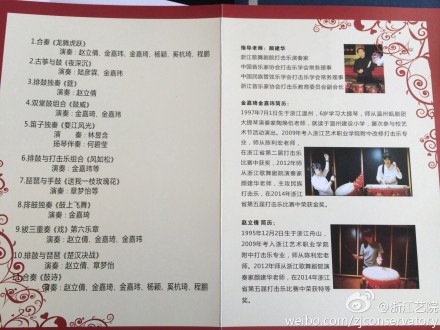 1.合奏《龙腾虎跃》
演奏：赵立倩、金嘉玮、金嘉琦、杨颖、奚杭琦、程鹏
2.古筝与鼓《夜深沉》
演奏：陆彦霖、金嘉玮
3.排鼓独奏《鼓》
演奏：赵立倩
4.双堂鼓组合《鼓威》
演奏：金嘉玮、金嘉琦
5.笛子独奏《婺江风光》
演 奏：林昱含
扬琴伴奏：何碧莹
6.排鼓与打击乐组合《风如松》
演奏：金嘉玮等
7.琵琶与手鼓《送我一枝玫瑰花》
演奏：章梦怡等
8.排鼓独奏《鼓上飞舞》
演奏：金嘉琦
9.钹三重奏《戏》第六乐章
演奏：赵立倩、金嘉玮、金嘉琦
10.排鼓与琵琶《楚汉决战》
演奏：赵立倩、章梦怡
11.合奏《鼓诗》
演奏：赵立倩、金嘉玮、金嘉琦、杨颖、奚杭琦、程鹏
指导老师：颜建华
浙江歌舞剧院打击乐演奏家
中国音乐家协会打击乐学会常务理事
中国民族管弦乐学会打击乐学会常务理事
浙江音乐家协会打击乐教育委员会副会长
金嘉玮金嘉琦简历：
1997年7月1日生于浙江温州，
提琴演奏家陶焕佑老师，就读于温州建设小学，屡次参与校艺
术节活动演出。2009年考入浙江艺术职业学院附中改修打击乐专
业，师从陈利宏老师，
在浙江省第二届打击乐
比赛中获奖，2012年师
从浙江歌舞剧院演奏家
颜建华老师，主攻民族
打击乐，在2014年浙江
省第五届打击乐比赛中荣获金奖。
赵立倩 简历：
1995年12月2日生于浙江舟山，
2009年考入浙江艺术职业学院
附中打击乐专业，师从陈利宏老
师。2012年师从浙江歌舞剧院演
奏家颜建华老师，在2014年浙江
省第五届打击乐比赛中荣获特等
奖。
@浙江艺院
weibo.com/zjconservatory